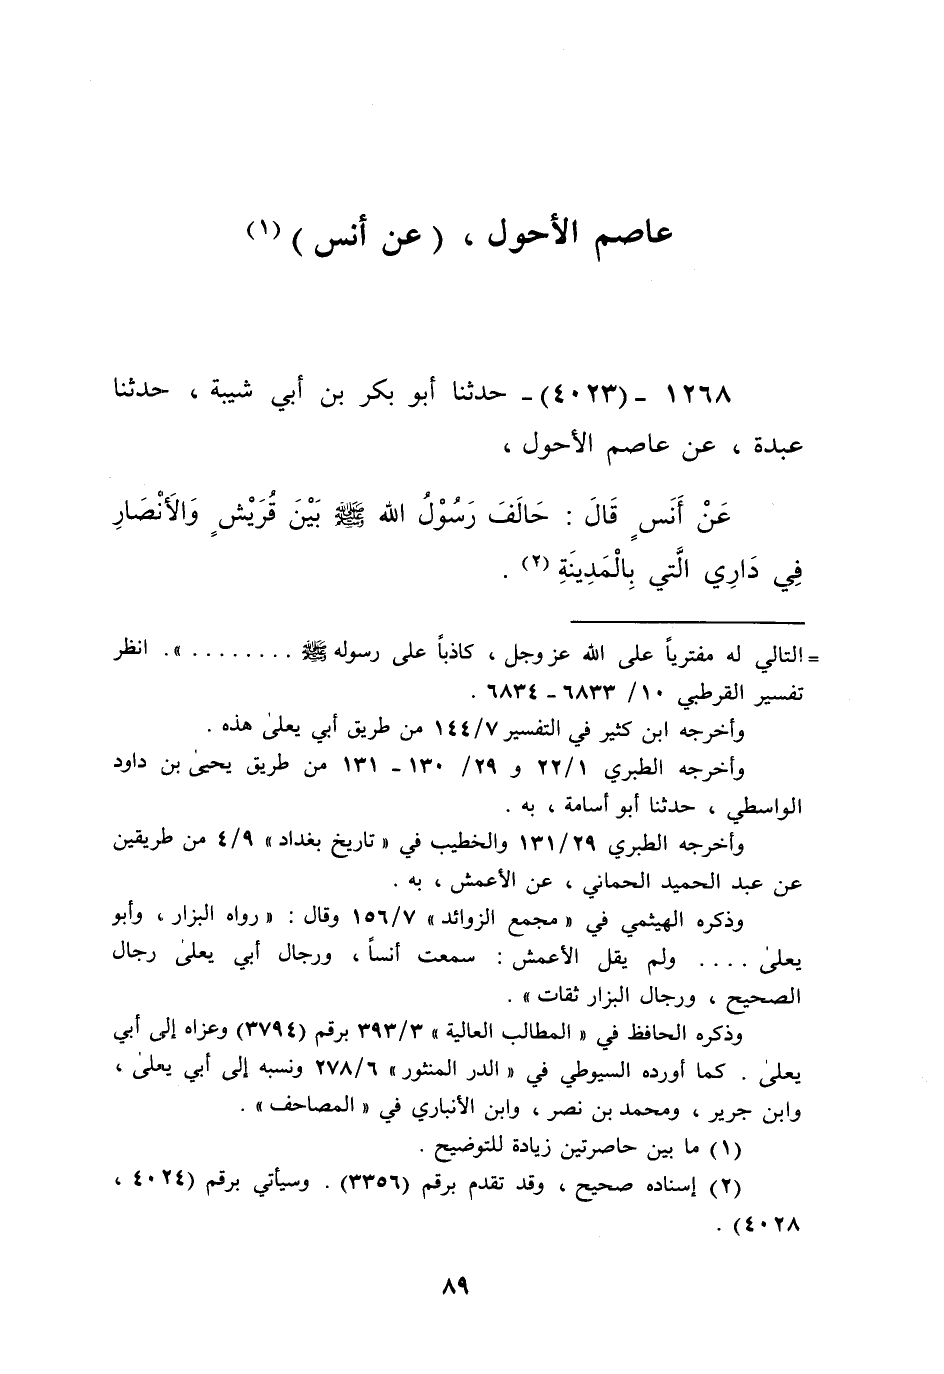 عاصم الأحول ، ( عن أنس ) (١)
١٢٦٨ - (٤٠٢٣) - حدثنا أبو بكر بن أبي شيبة ، حدثنا
عبدة ، عن عاصم الأحول ،
عَنْ أَنَسٍ قَالَ : حَالَفَ رَسُوْلُ الله ﷺ بَيْنَ قُرَيْشٍ وَالأَنْصَارِ
فِي دَارِي الَّتي بِالْمَدِينَةِ (٢) .
= التالي له مفترياً على الله عز وجل ، كاذباً على رسوله ﷺ . . . . . . . . ». انظر
تفسير القرطبي ١٠/ ٦٨٣٣ - ٦٨٣٤ .
وأخرجه ابن كثير في التفسير ١٤٤/٧ من طريق أبي يعلىٰ هذه .
وأخرجه الطبري ٢٢/١ و ٢٩/ ١٣٠ - ١٣١ من طريق يحيىٰ بن داود
الواسطي ، حدثنا أبو أسامة ، به .
وأخرجه الطبري ١٣١/٢٩ والخطيب في « تاريخ بغداد » ٤/٩ من طريقين
عن عبد الحميد الحماني ، عن الأعمش ، به .
وذكره الهيثمي في « مجمع الزوائد » ١٥٦/٧ وقال : « رواه البزار ، وأبو
يعلىٰ . . . . ولم يقل الأعمش : سمعت أنساً ، ورجال أبي يعلىٰ رجال
الصحيح ، ورجال البزار ثقات » .
وذكره الحافظ في « المطالب العالية » ٣٩٣/٣ برقم (٣٧٩٤) وعزاه إلى أبي
يعلىٰ . كما أورده السيوطي في « الدر المنثور » ٢٧٨/٦ ونسبه إلى أبي يعلىٰ ،
وابن جرير ، ومحمد بن نصر ، وابن الأنباري في « المصاحف » .
(١) ما بين حاصرتين زيادة للتوضيح .
(٢) إسناده صحيح ، وقد تقدم برقم (٣٣٥٦) . وسيأتي برقم (٤٠٢٤ ،
٤٠٢٨) .
٨٩